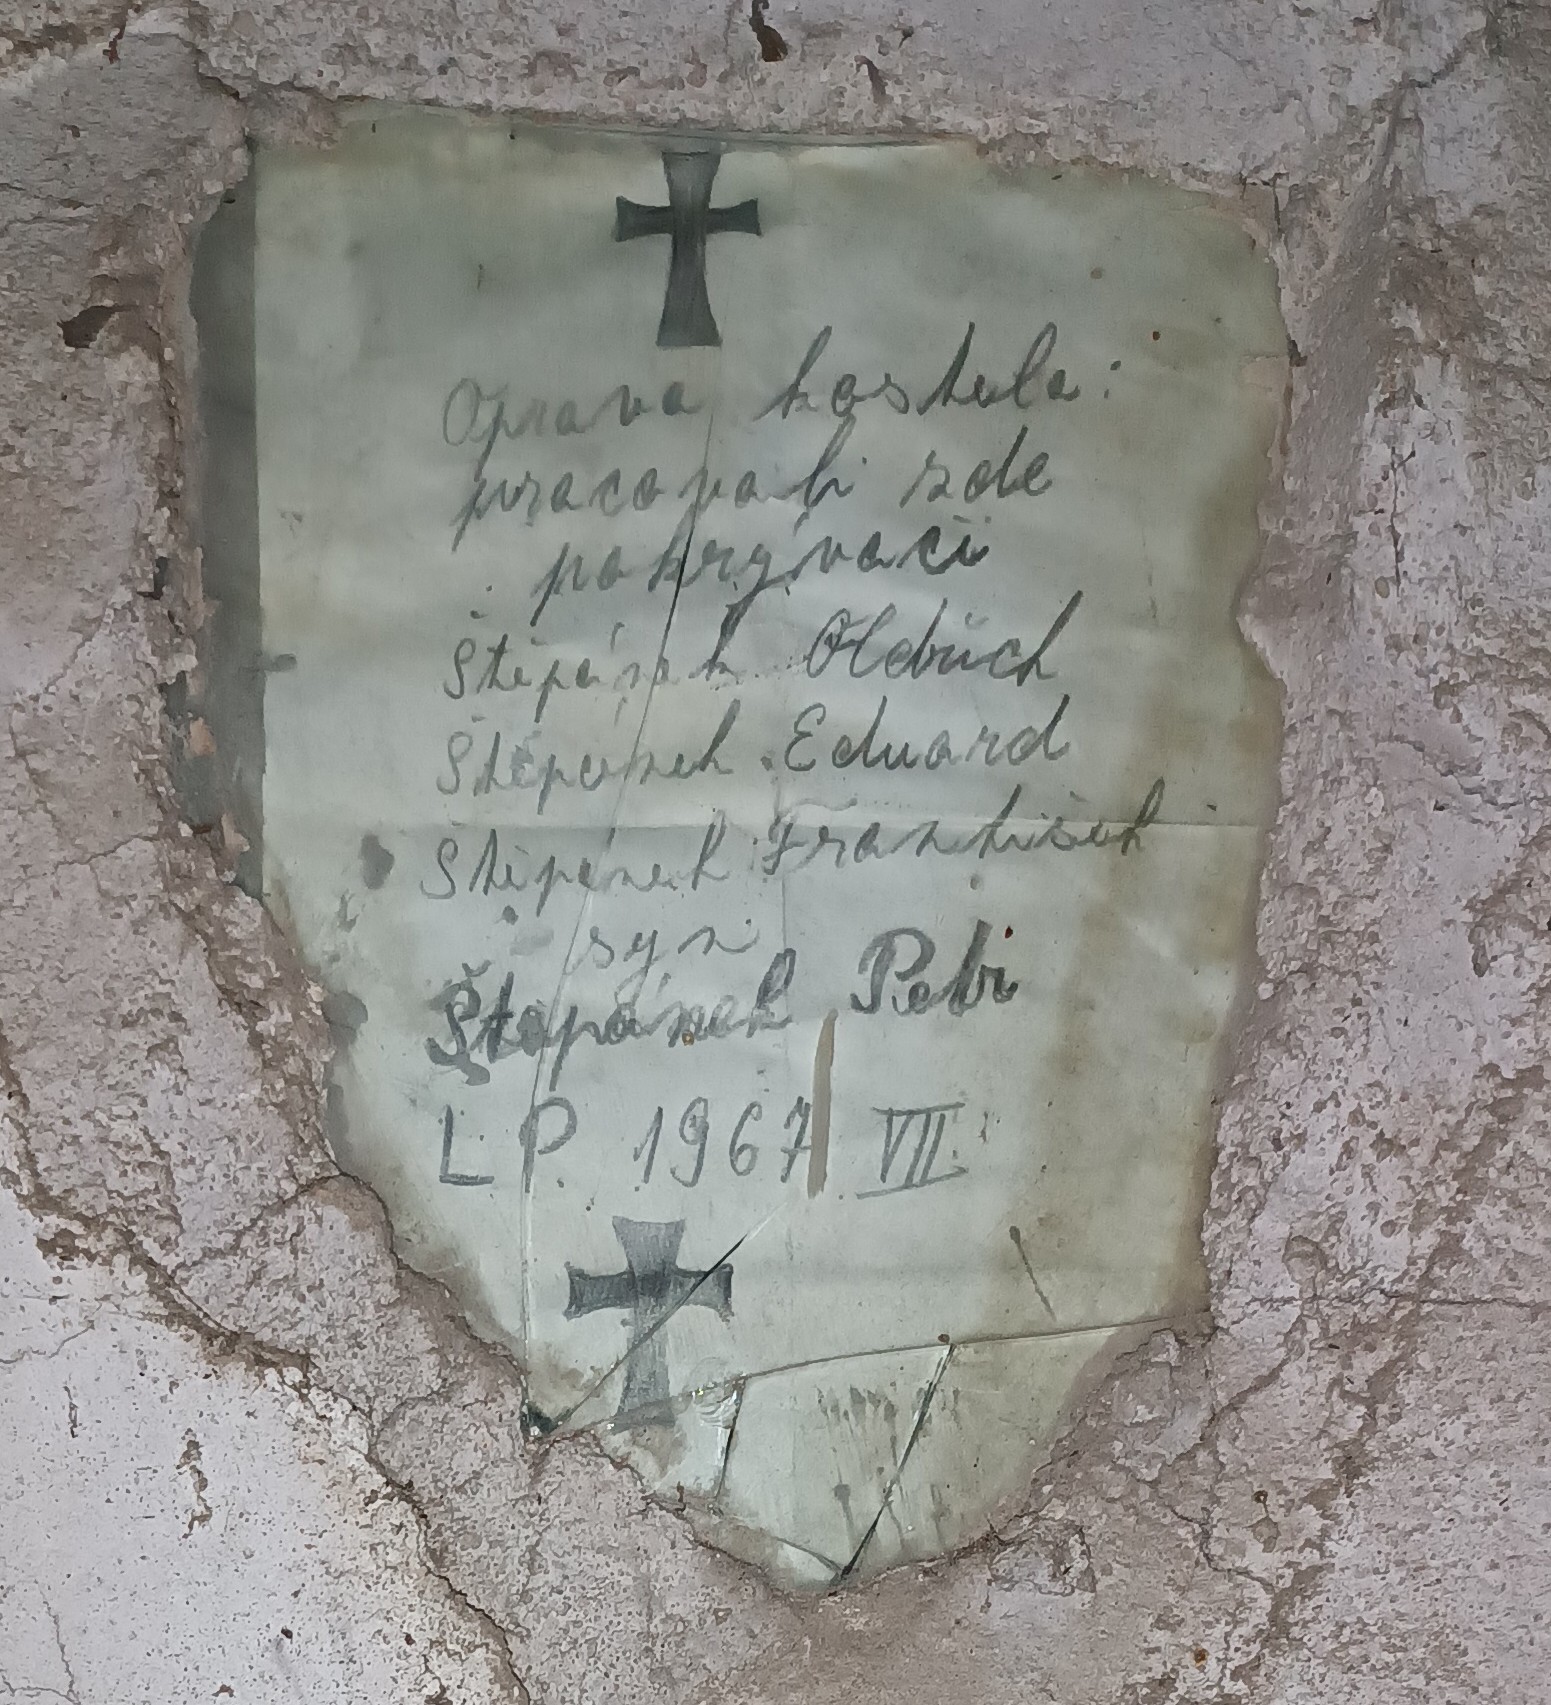 Oprava kostela:
pracovali zde
pokrývači
Štěpánek Oldřich
Štěpánek Eduard
Štěpánek František
syn
Štěpánek Petr
L. P. 1967 VII.